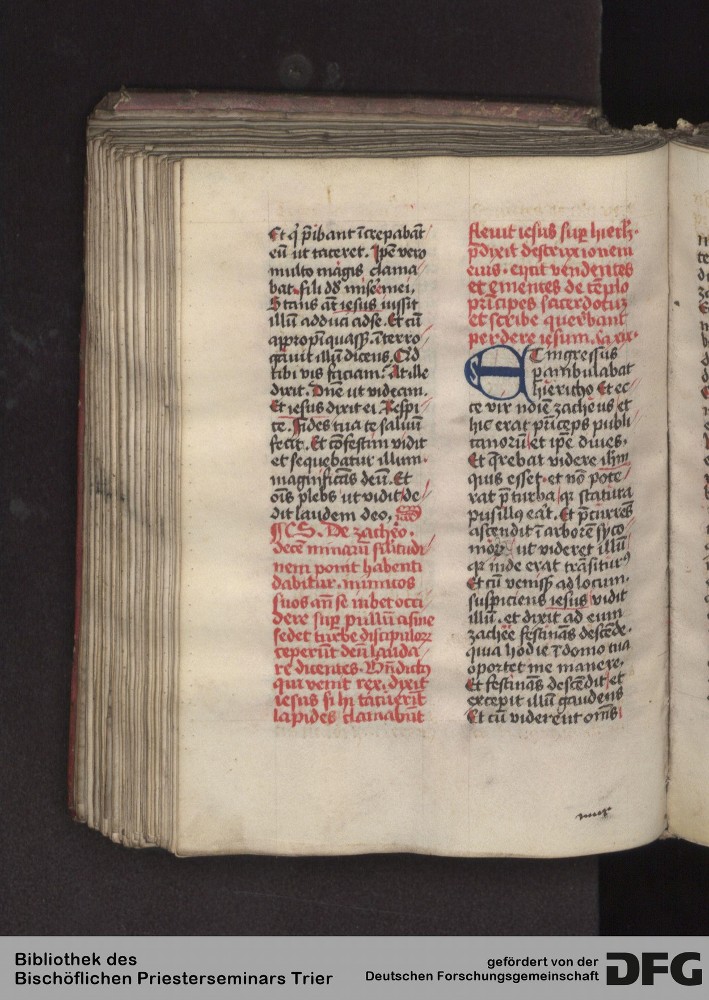 Et q̇ p̃ibant ĩcrepabãt
eũ ut taceret. Ip̃e vero
multo magis clama
bat. fili dd̃ mis̃e̾mei.
Stans aũt iesus iussit
illũ adduci ad se. Et cũ
appropĩquass̃. ĩterro
gauit illũ dicens. Q̇d
tibi vis faciam. At ille
dixit. Dñe ut videam.
Et iesus dixit ei. Respi
ce. Fides tua te saluũ
fecit. Et cõfestim vidit
et sequebatur illum.
magnificãs deũ. Et
oĩs plebs ut vidit de
dit laudem deo.
De zacheo.
decẽ minarũ similitudi
nem ponit habenti
dabitur. inimicos
suos añ se iubet occi
dere sup̱ pullũ asine
sedet turbe discipuloꝝ
ceperũt deũ lauda
re dicentes. Bñdictꝰ
qui venit rex. dixit
iesus si hi tacuerĩt
lapides clamabũt
fleuit iesus sup̱ hierlm̃.
p̃dixit descripcionem
eius. eycit vendentes
et ementes de tẽplo
prĩcipes sacerdotuꝫ
et scribe querebant
perdere iesum. Ca xix.
ET ingressus
perambulabat
hiericho Et ec
ce vir noĩe zacheus et
hic erat prĩceps publi
canorũ et ip̃e diues.
Et q̃rebat videre ihm̃
quis esset. et nõ pote
rat p̃ turba. qꝛ statura
pusillꝰ erat. Et p̃currẽs
ascendit ĩ arborẽ syco
morũ ut videret illũ
qꝛ inde erat trãsiturꝰ
Et cũ veniss̃ ad locum.
suspiciens iesus vidit
illũ. et dixit ad eum
zachee festinãs descẽde.
quia hodie ĩ domo tua
oportet me manere.
Et festinãs descẽdit et
excepit illũ gaudens
Et cũ viderent om̃s
Bibliothek des
Bischöflichen Priesterseminars Trier
gefördert von der
Deutschen Forschungsgemeinschaft
DFG